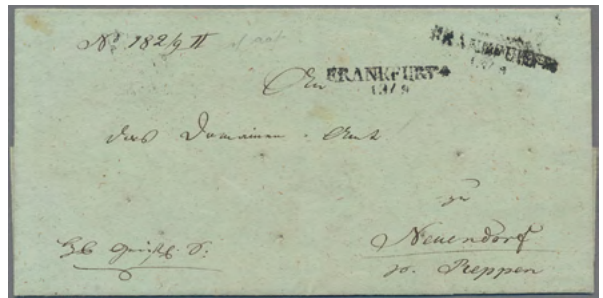 No 182/9 II
FRANKFURT
13/9
An
FRANKFURT
13/9
das Domainen-Amt
zu
Neuendorf
p. Reppen